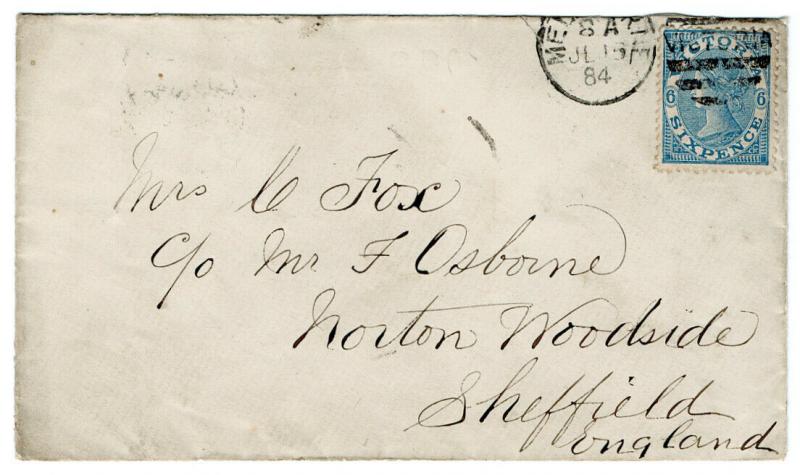 8 A
JL 15
84
VICTORIA
6 6
SIXPENCE
Mrs C Fox
c/o Mr F Osborne
Norton Woodside
Sheffield
England